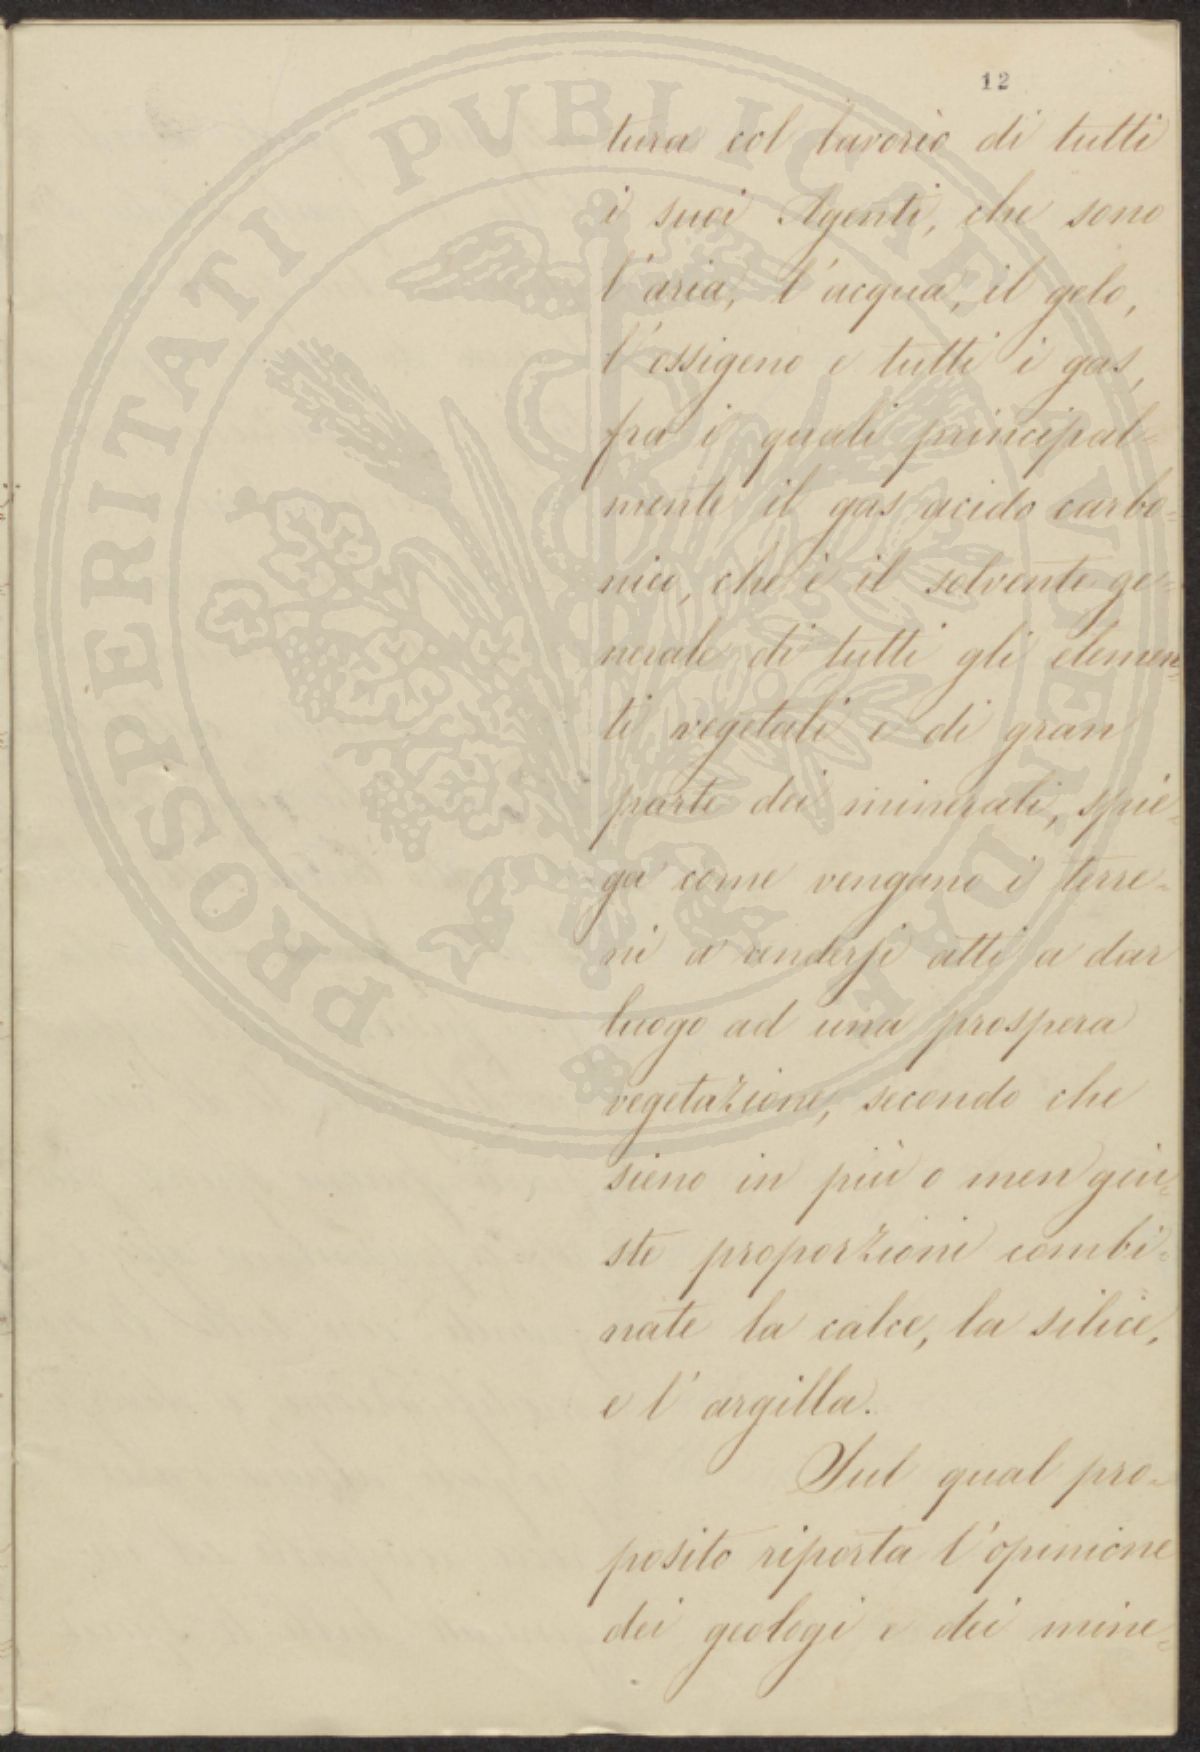 12
tura col lavorìo di tutti
i suoi Agenti, che sono
l'aria, l'acqua, il gelo,
l'ossigeno e tutti i gas,
fra i quali principal=
mente il gas acido carbo=
nico, che è il solvente ge=
nerale di tutti gli elemen=
ti vegetali e di gran
parte dei minerali, spie=
ga come vengano i terre=
ni a rendersi atti a dar
luogo ad una prospera
vegetazione, secondo che
sieno in più o men giu=
ste proporzioni combi=
nate la calce, la silice,
e l'argilla.
Sul qual pro=
posito riporta l'opinione
dei geologi e dei mine=
PROSPERITATI PVBLICAE AVGENDAE